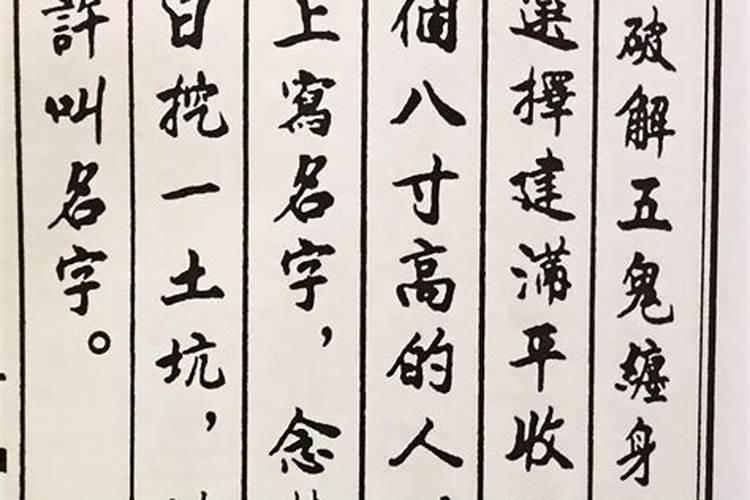 破解五鬼纏身
選擇建滿平收
個八寸高的人
上寫名字，念
日挖一土坑，
許叫名字。